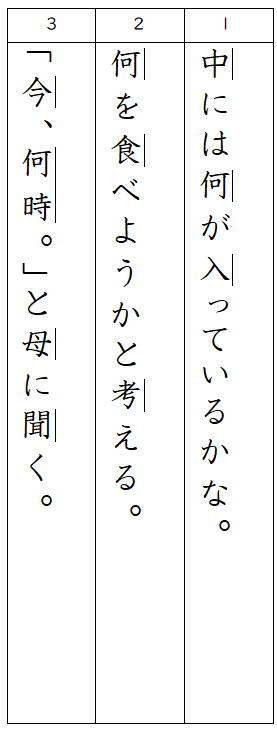 1
中には何が入っているかな。
2
何を食べようかと考える。
3
「今、何時。」と母に聞く。